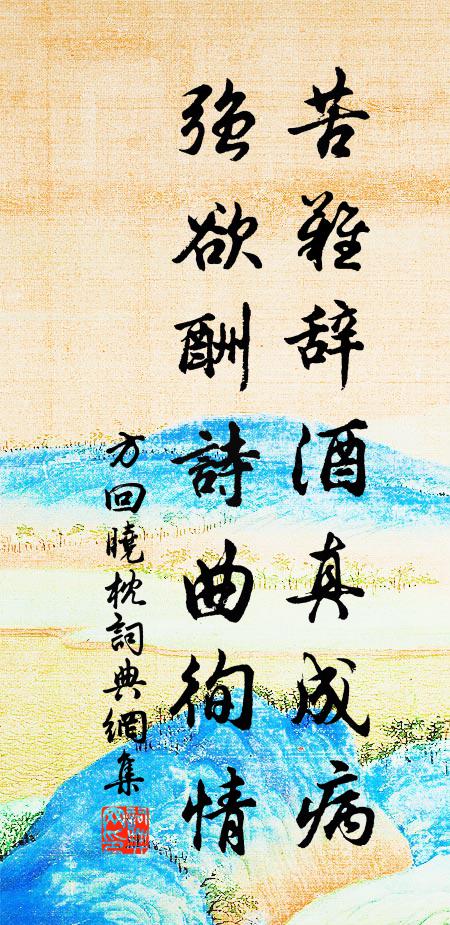 苦難辞酒真成病
強欲酬詩曲徇情
方回曉枕詞典網集